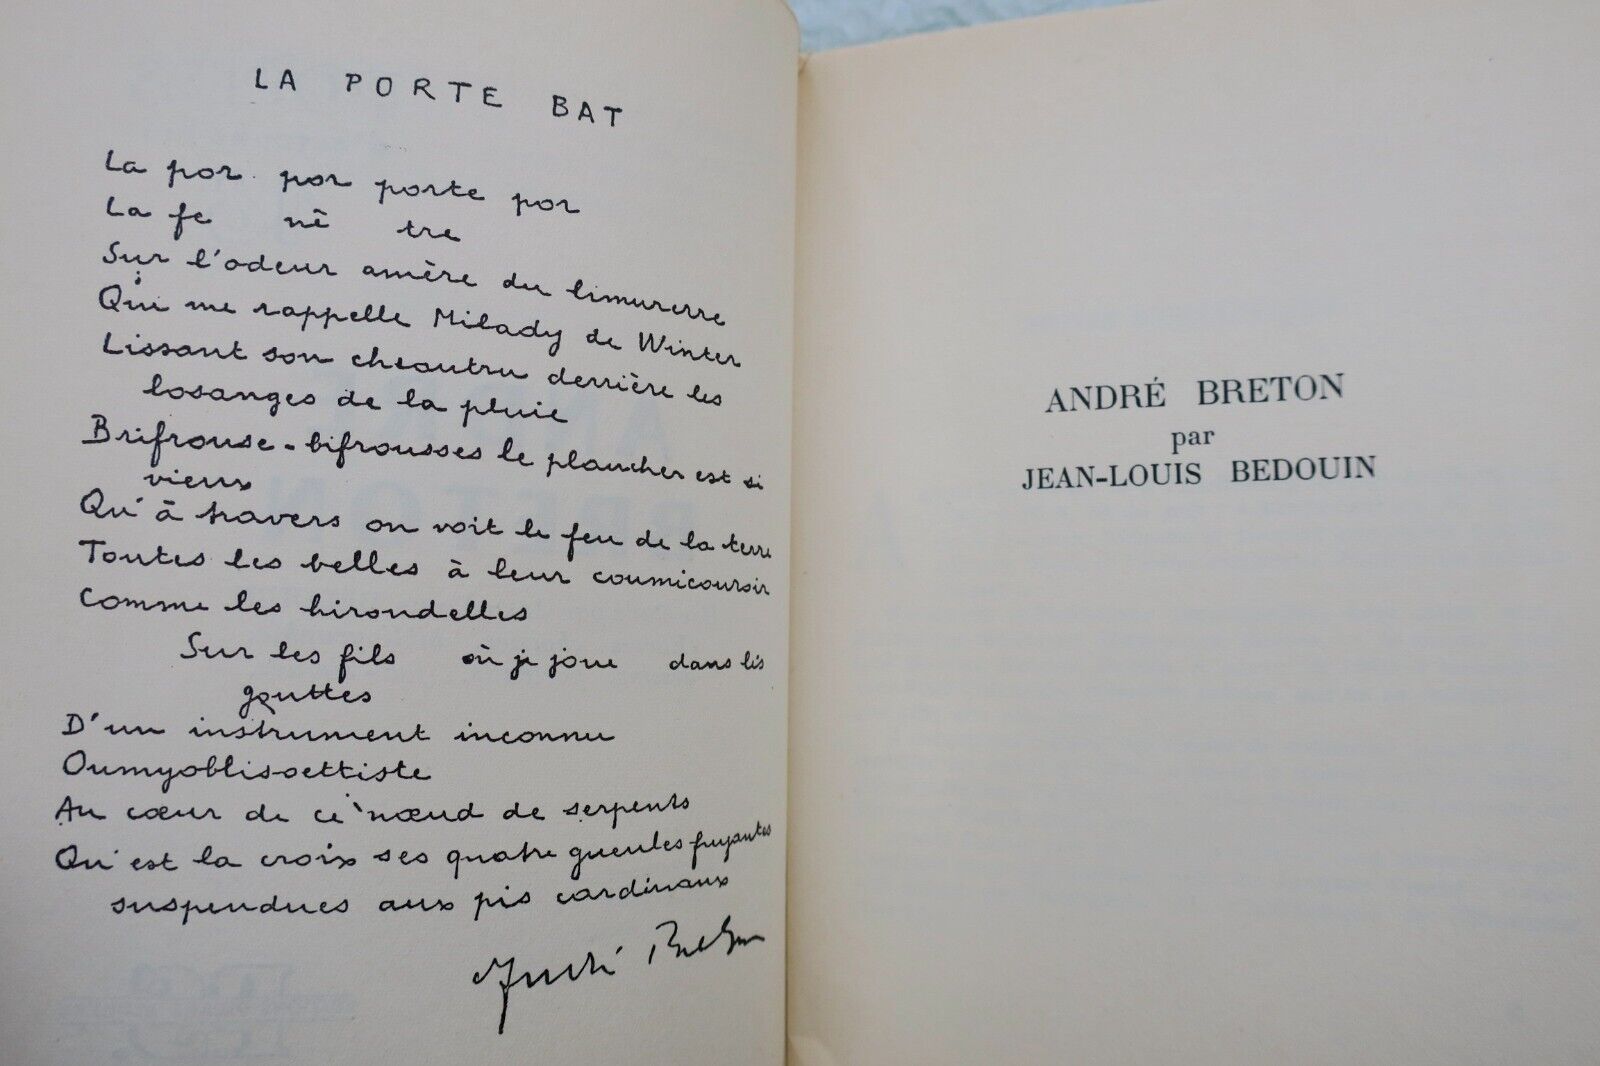 LA PORTE BAT
La por por porte por
La fe nê tre
Sur l'odeur amère du limurerre
Qui me rappelle Milady de Winter
Lissant son cheoutru derrière les
losanges de la pluie
Brifrouse-bifrousses le plancher est si
vieux
Qu'à travers on voit le feu de la terre
Toutes les belles à leur coumicoursir
Comme les hirondelles
Sur les fils où je joue dans les
gouttes
D'un instrument inconnu
Oumyoblisoettiste
Au cœur de ce nœud de serpents
Qu'est la croix ses quatre gueules fuyantes
suspendues aux pis cardinaux
André Breton
ANDRÉ BRETON
par
JEAN-LOUIS BEDOUIN